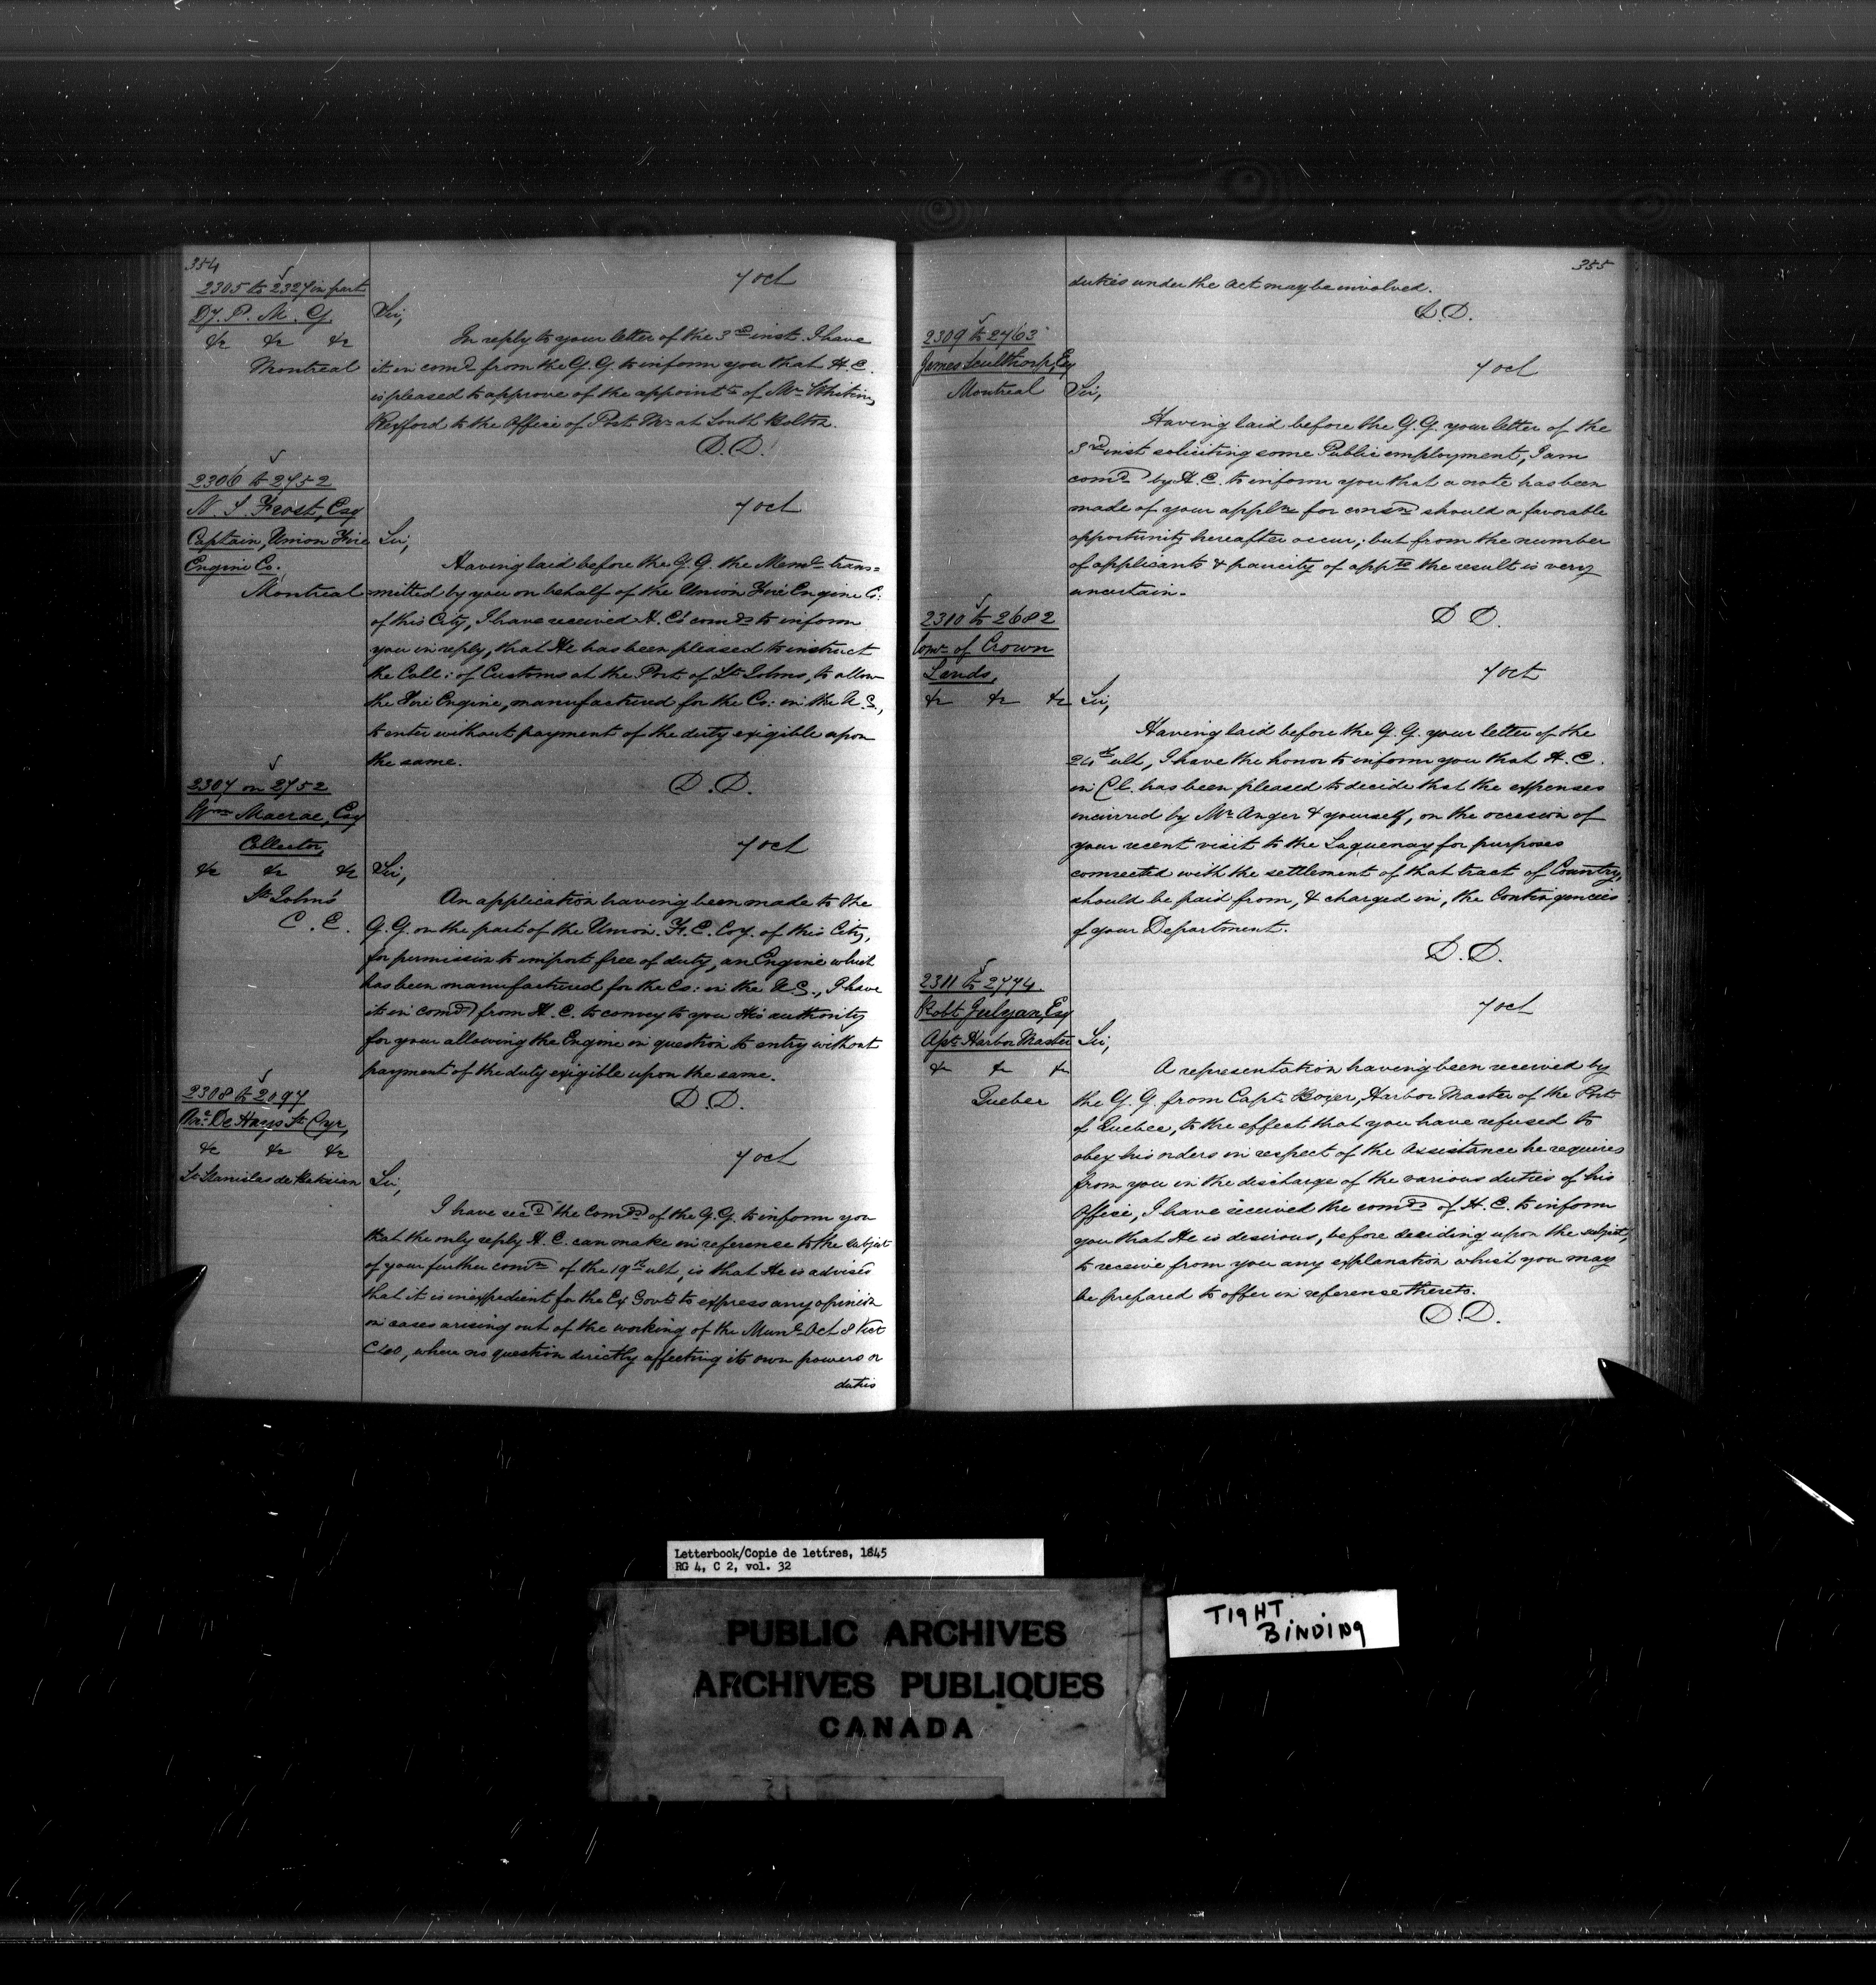 354
2305 to 2327 in part
Dy. P. M. G.
&c &c &c
Montreal
7 Oct
Sir,
In reply to your letter of the 3rd inst. I have
it in comd from the G.G. to inform you that H.E.
is pleased to approve of the appointt of Mr Whiting
Rexford to the Office of Post Mr at South Bolton.
D.D.
2306 to 2752
N. S. Frost, Esq
Captain, Union Fire
Engine Co.
Montreal
7 Oct
Sir,
Having laid before the G.G. the Meml trans=
mitted by you on behalf of the Union Fire Engine Co:
of this City, I have received H.E's comds to inform
you in reply, that He has been pleased to instruct
the Coll: of Customs at the Port of St Johns, to allow
the Fire Engine, manufactured for the Co: in the U.S.,
to enter without payment of the duty exigible upon
the same.
D.D.
2307 on 2752
Wm Macrae, Esq
Collector,
&c &c &c
St Johns
C.E.
7 Oct
Sir,
An application having been made to the
G.G. on the part of the Union F.E. Coy. of this City,
for permission to import free of duty, an Engine which
has been manufactured for the Co: in the U.S., I have
it in comd from H.E. to convey to you His authority
for your allowing the Engine in question to entry without
payment of the duty exigible upon the same.
D.D.
2308 to 2097
De Hays St Cyr,
&c &c &c
St Stanislas de
7 Oct
Sir,
I have recd the Comds of the G.G. to inform you
that the only reply H.E. can make in reference to the subject
of your further comn of the 19th ult, is that He is advised
that it is inexpedient for the Ex Govt to express any opinion
on cases arising out of the working of the Munl Act 8 Vict
C40, where no question directly affecting its own powers or
duties
355
duties under the Act may be involved.
D.D.
2309 to 2763
James Sculthorp, Esq
Montreal
7 Oct
Sir,
Having laid before the G.G. your letter of the
3rd inst soliciting some Public employment, I am
comd by H.E. to inform you that a note has been
made of your appln for consn should a favorable
opportunity hereafter occur; but from the number
of applicants & paucity of appts the result is very
uncertain.
D.D.
2310 to 2682
Comr of Crown
Lands,
&c &c &c
7 Oct
Sir,
Having laid before the G.G. your letter of the
24th ult, I have the honor to inform you that H.E.
in Cl. has been pleased to decide that the expenses
incurred by Mr Anger & yourself, on the occasion of
your recent visit to the Saguenay for purposes
connected with the settlement of that tract of Country,
should be paid from, & charged in, the Contingencies
of your Department.
D.D.
2311 to 2774
Robt Julyan, Esq
Asst Harbor Master
&c &c &c
Quebec
7 Oct
Sir,
A representation having been received by
the G.G. from Capt. Boxer, Harbor Master of the Port
of Quebec, to the effect that you have refused to
obey his orders in respect of the Assistance he requires
from you in the discharge of the various duties of his
Office, I have received the comds of H.E. to inform
you that He is desirous, before deciding upon the subject,
to receive from you any explanation which you may
be prepared to offer in reference thereto.
D.D.
Letterbook/Copie de lettres, 1845
RG 4, C 2, vol. 32
PUBLIC ARCHIVES
ARCHIVES PUBLIQUES
CANADA
TIGHT
BINDING